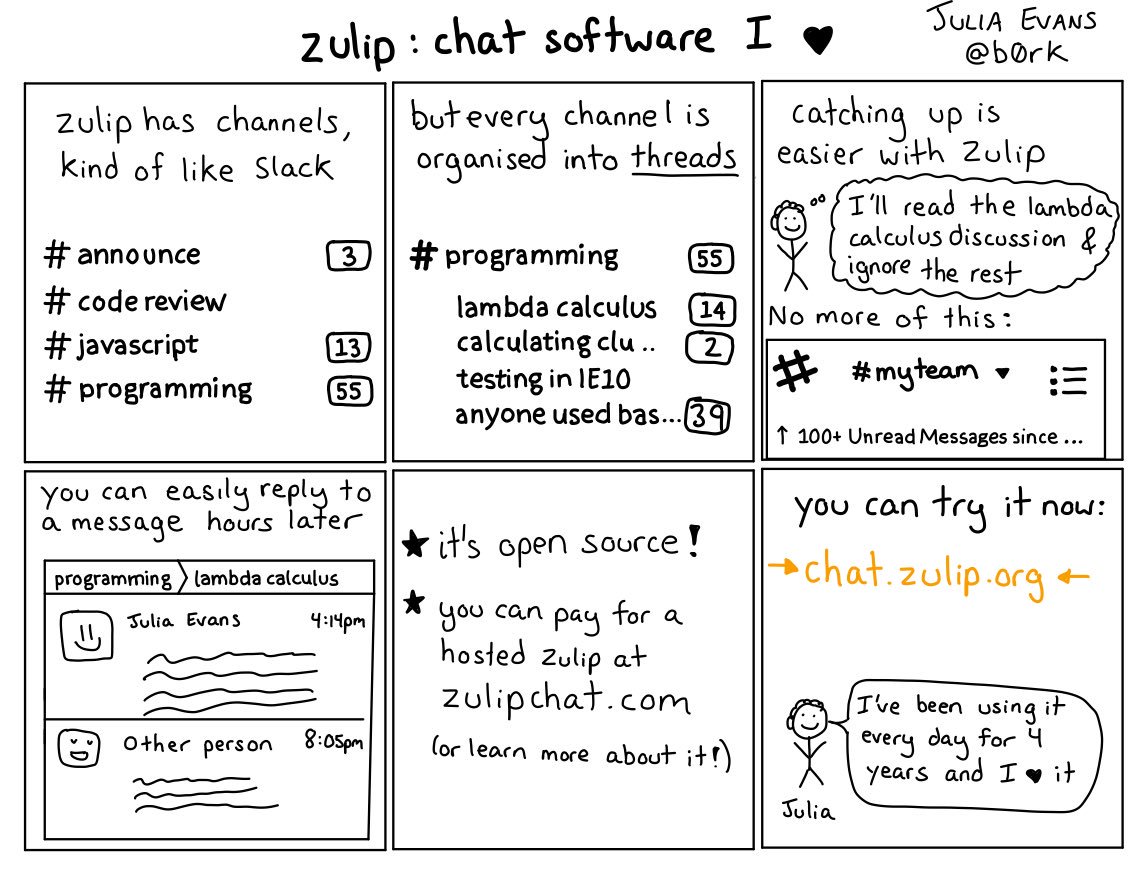 zulip: chat software I ♥
JULIA EVANS
@b0rk
zulip has channels,
kind of like Slack
# announce 3
# code review
# javascript 13
# programming 55
but every channel is
organised into threads
# programming 55
lambda calculus 14
calculating clu .. 2
testing in IE10
anyone used bas... 39
catching up is
easier with Zulip
I'll read the lambda
calculus discussion &
ignore the rest
No more of this:
# #myteam ▾
↑ 100+ Unread Messages since ...
you can easily reply to
a message hours later
programming > lambda calculus
Julia Evans 4:14pm
Other person 8:05pm
★ it's open source!
★ you can pay for a
hosted zulip at
zulipchat.com
(or learn more about it!)
you can try it now:
→ chat.zulip.org ←
I've been using it
every day for 4
years and I ♥ it
Julia